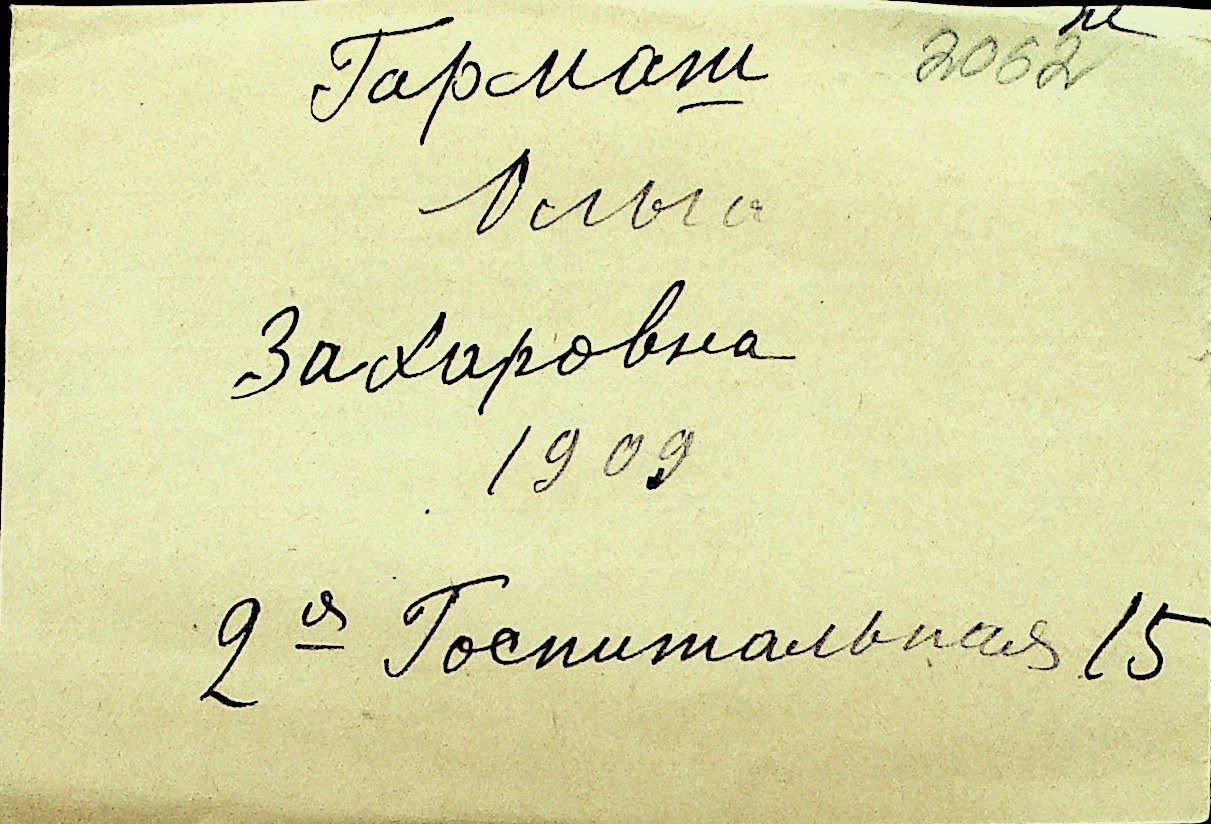 Гармаш 2062
Ольга
Захаровна
1909
2я Госпитальная 15